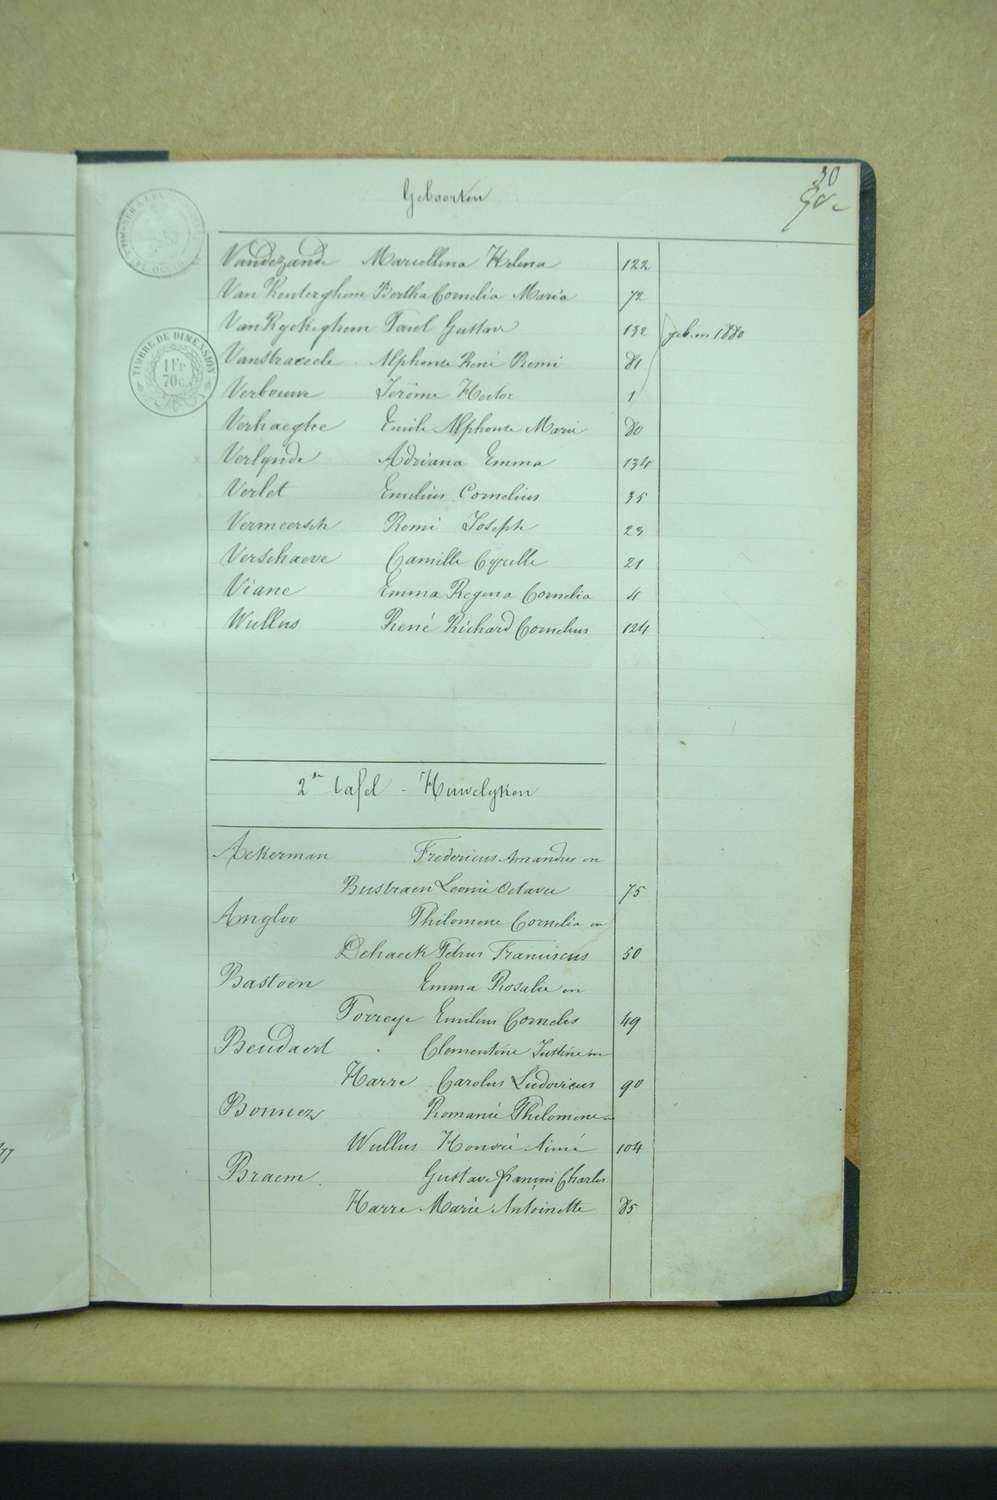 30
Geboorten
Vandezande Marcellina Helena 122
Van Renterghem Bertha Cornelia Maria 72
Van Ryckeghem Paul Gustave 132 geb. en 1880
Vanstraceele Alphonse René Remi 81
Verbouw Jerôme Hector 1
Verhaeghe Emile Alphonse Marie 80
Verlynde Adriana Emma 134
Verlet Emilius Cornelius 35
Vermeersch Remi Joseph 23
Verschaeve Camille Cyrille 21
Viane Emma Regina Cornelia 4
Wullus René Richard Cornelius 124
TIMBRE DE DIMENSION
1 Fr
70c
2de tafel - Huwelyken
Ackerman Fredericus Amandus en
Bustraen Leonie Octavie 75
Angloo Philomene Cornelia en
Dehaeck Petrus Franciscus 50
Bastoen Emma Rosalie en
Torreye Emilius Cornelis 49
Beudaert Clementine Justine en
Harre Carolus Ludovicus 90
Bonnez Romanie Philomene en
Wullus Honoré Aimé 104
Braem Gustave François Charles
Harre Marie Antoinette 85